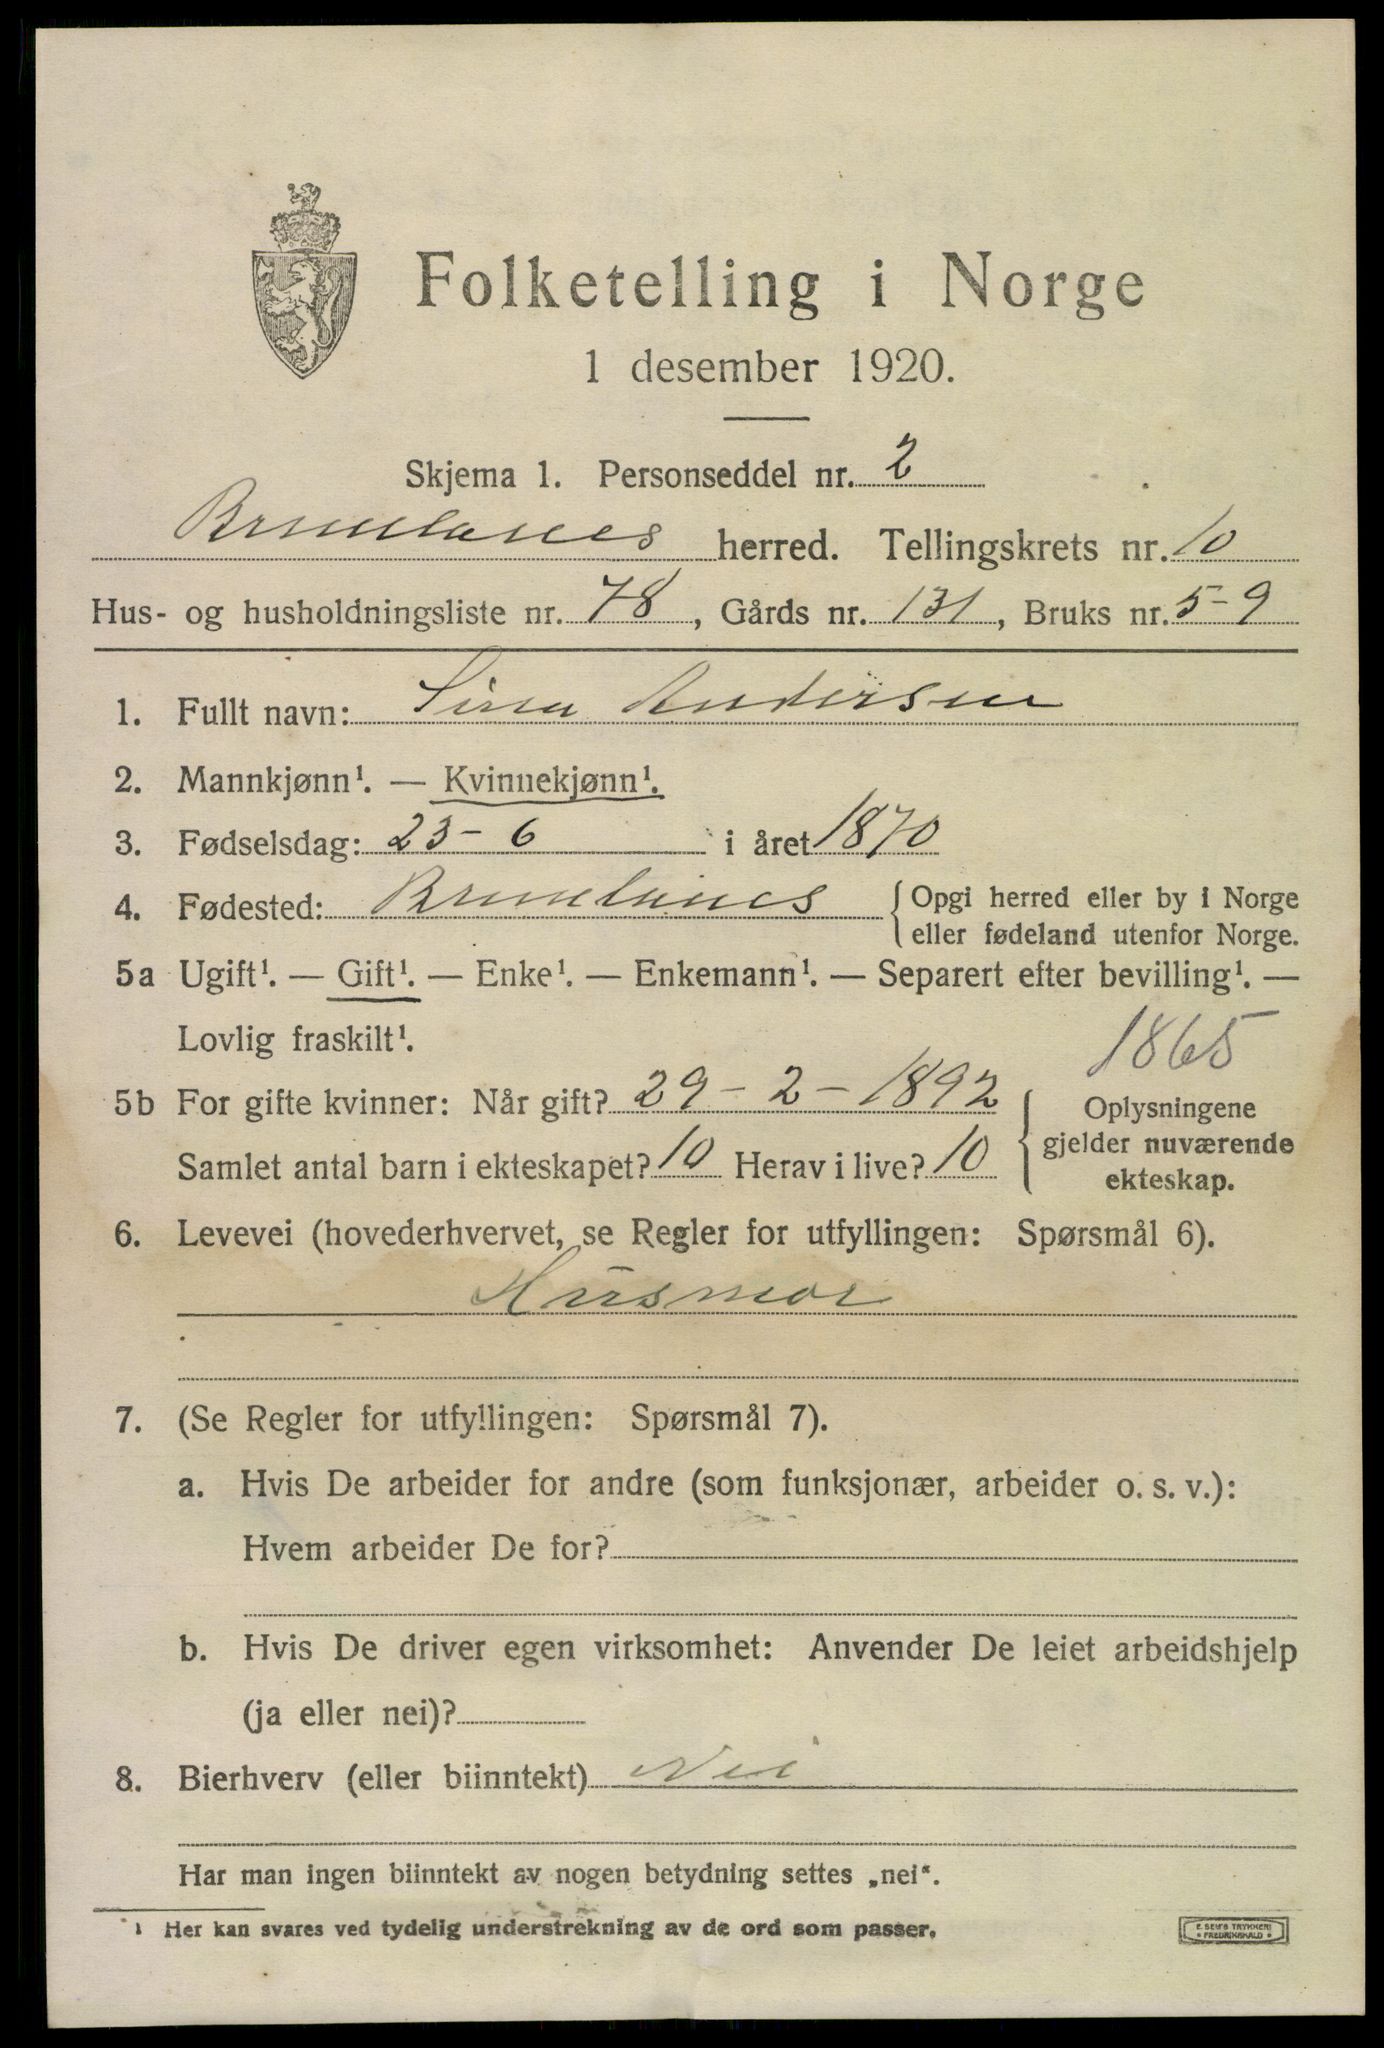 Folketelling i Norge
1 desember 1920.
Skjema 1. Personseddel nr. 2
Brunlanes herred. Tellingskrets nr. 10
Hus- og husholdningsliste nr. 78, Gårds nr. 131, Bruks nr. 5-9
1. Fullt navn: Sina Andersen
2. Mannkjønn¹. — Kvinnekjønn¹.
3. Fødselsdag: 23-6 i året 1870
4. Fødested: Brunlanes { Opgi herred eller by i Norge
eller fødeland utenfor Norge.
5a Ugift¹. — Gift¹. — Enke¹. — Enkemann¹. — Separert efter bevilling¹. —
Lovlig fraskilt¹.
1865
5b For gifte kvinner: Når gift? 29-2-1892 { Oplysningene
gjelder nuværende
Samlet antal barn i ekteskapet? 10 Herav i live? 10
ekteskap.
6. Levevei (hovederhvervet, se Regler for utfyllingen: Spørsmål 6).
Husmor
7. (Se Regler for utfyllingen: Spørsmål 7).
a. Hvis De arbeider for andre (som funksjonær, arbeider o. s. v.):
Hvem arbeider De for?
b. Hvis De driver egen virksomhet: Anvender De leiet arbeidshjelp
(ja eller nei)?
8. Bierhverv (eller biinntekt) Nei
Har man ingen biinntekt av nogen betydning settes „nei“.
¹ Her kan svares ved tydelig understrekning av de ord som passer.
E. SEM'S TRYKKERI
• FREDRIKSHALD •